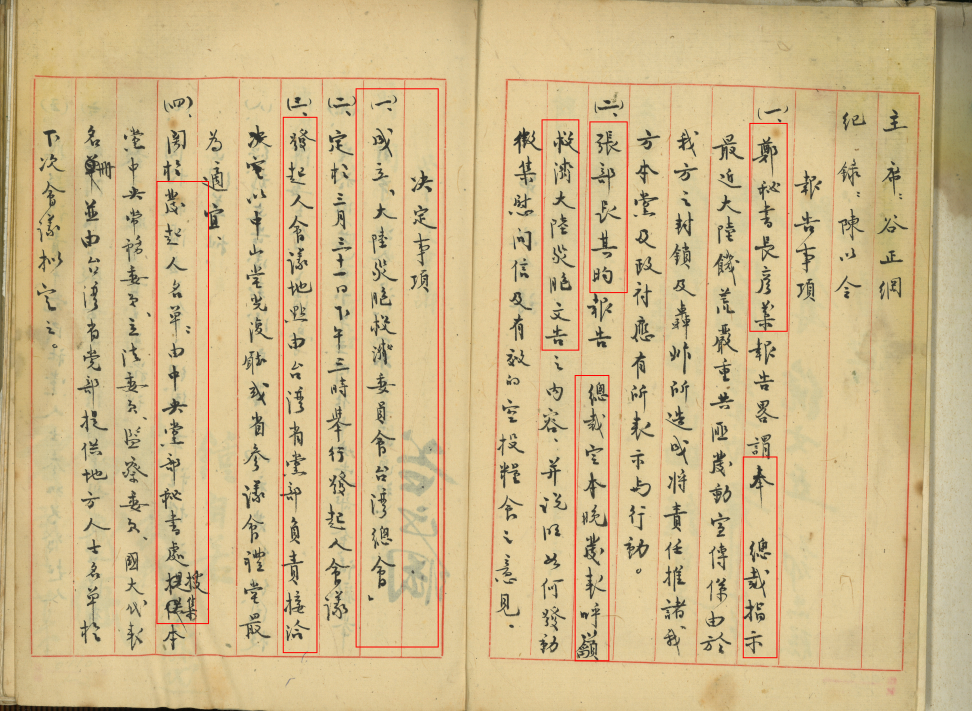 主席：谷正綱
紀錄：陳以令
報告事項
(一)、鄭秘書長彥棻報告畧謂奉 總裁指示
最近大陸饑荒嚴重共匪發動宣傳係由於
我方之封鎖及轟炸所造成將責任推諸我
方本黨及政府應有所表示与行動。
(二)、張部長其昀報告 總裁定本晚發表呼籲
救濟大陸災胞文告之內容、并說明如何發動
徵集慰问信及有效的空投糧食之意見。
決定事項
(一)、成立「大陸災胞救濟委員會台灣總會」
(二)、定於三月三十一日下午三時舉行發起人會議
(三)、發起人會議地點由台灣省黨部負責接洽
決定以中山堂光復廳或省參議會禮堂最
為適宜、
(四)、関於發起人名單：由中央黨部秘書處搜集本
黨中央常務委員、立法委員、監察委員、國大代表
名冊並由台湾省党部提供地方人士名單於
下次會議拟定之。